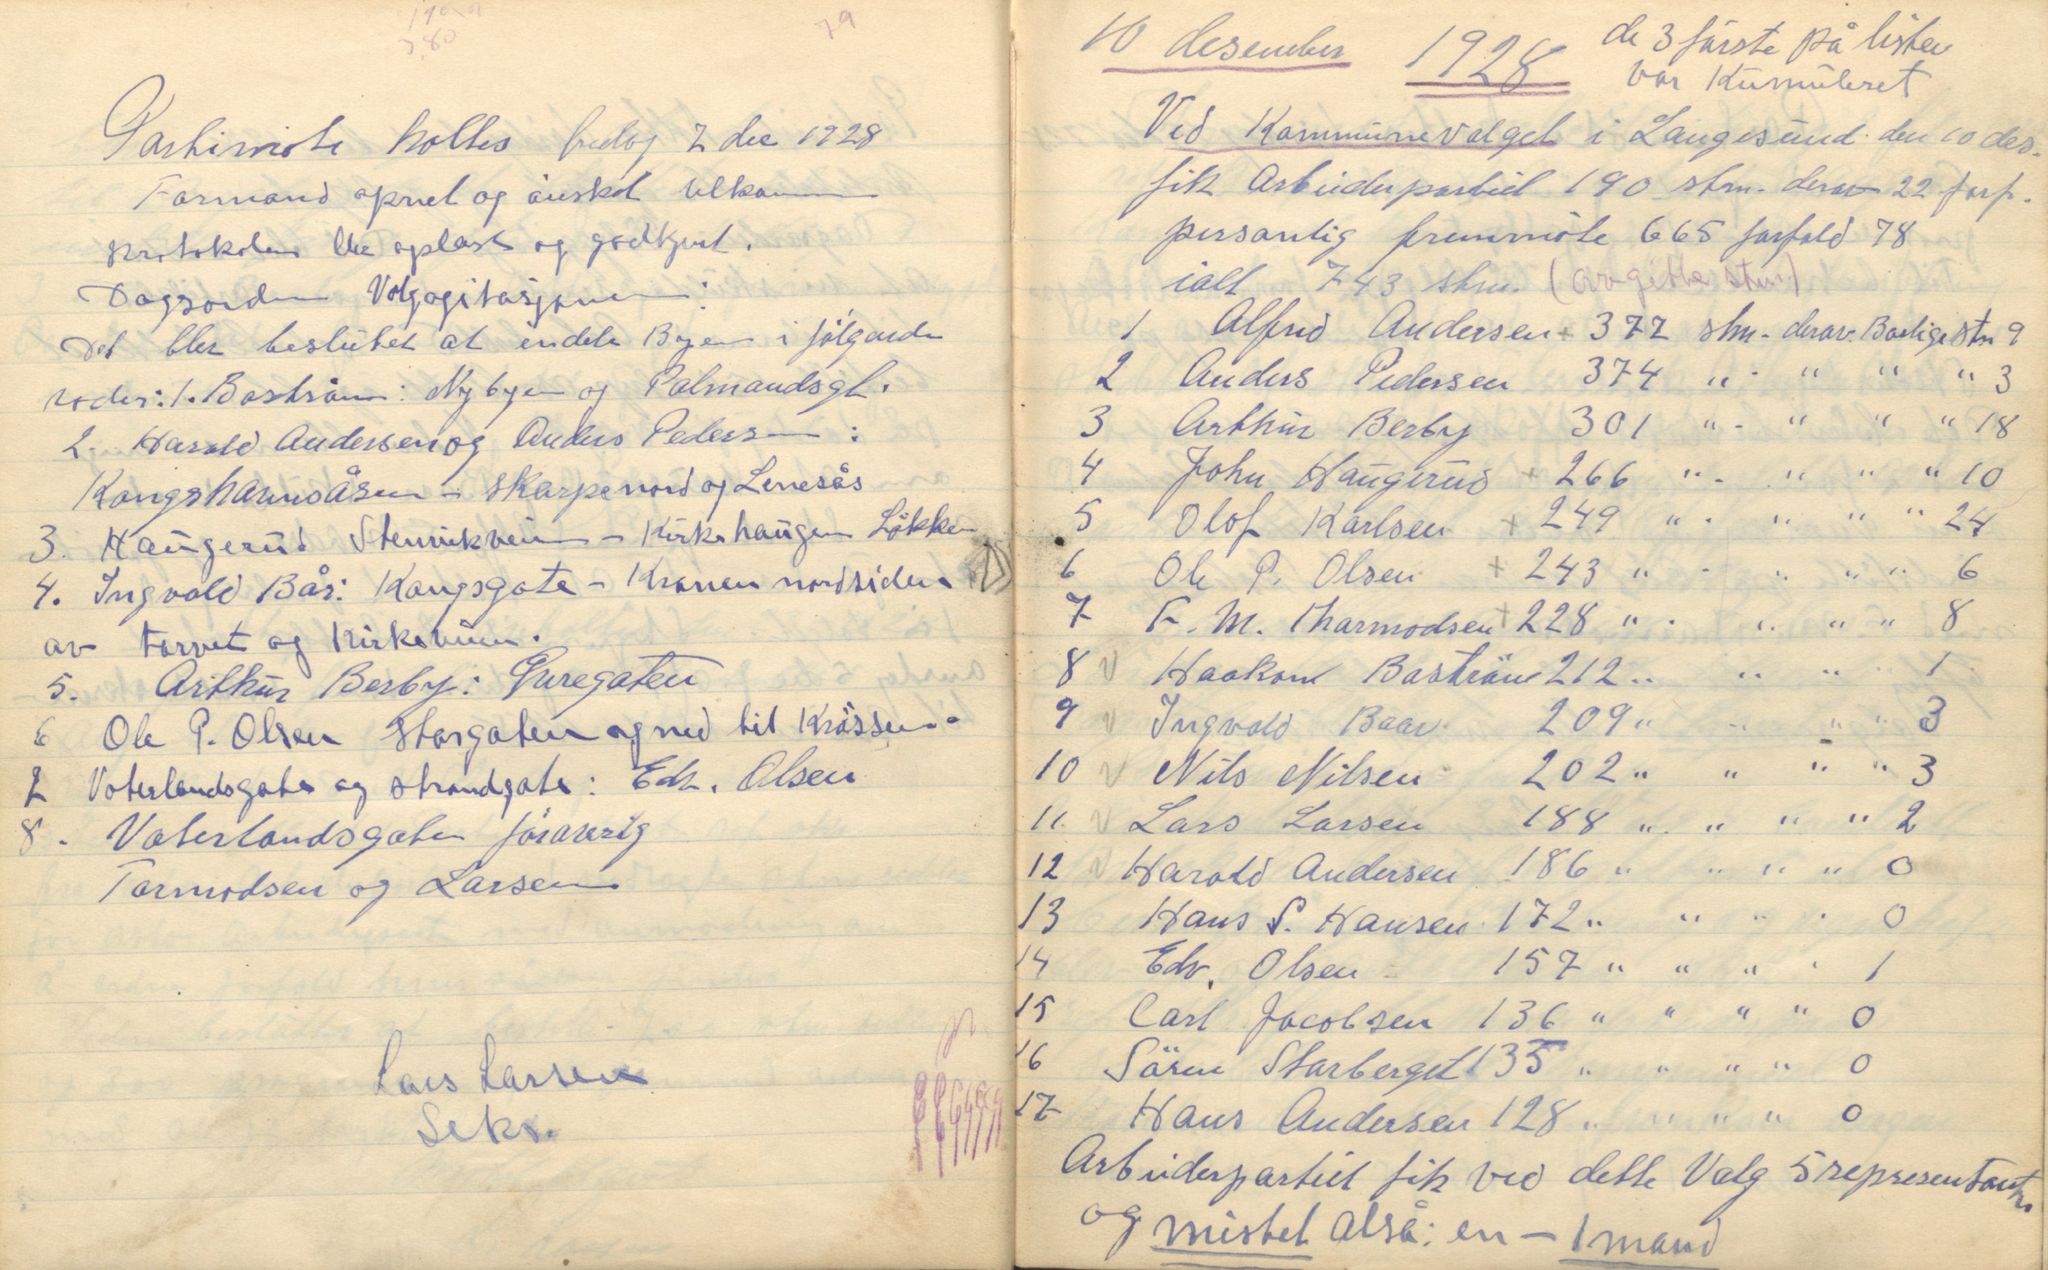 79
Partimöte holtes fredag 7 dec 1928
Formand apnet og önsket velkommen
protokolen ble oplæst og godkjent.
Dagsorden Valgagitasjonen:
Det blev beslutet at indele Byen i fölgende
roder: 1. Boström: Nybyen og Palmandsgt.
2. Harald Andersen og Anders Pedersen:
Kongshavnsåsen - skarpenord og Lenesås
3. Haugerud Stenvikveien - Kirkehaugen Lökken
4. Ingvald Bår: Kongsgate - Kranen nordsiden
av torvet og Kirkeveien.
5. Arthur Berby: Guregaten
6 Ole P. Olsen Storgaten og ned til Krössen.
7 Vaterlandsgate og strandgate: Edv. Olsen
8. Vaterlandsgaten föraverig
Tormodsen og Larsen
Lars Larsen
Sekr.
10 desember 1928
de 3 förste på listen
var Kumuleret
Ved Kommunevalget i Langesund den 10 des.
fik Arbeiderpartiet 190 stm. derav 22 forf.
personlig fremmöte 665 forfald 78
ialt 743 stm. (avgitte stm)
1 Alfred Andersen + 377 stm. derav Borlige stm 9
2 Anders Pedersen 374 " " " " 3
3 Arthur Berby 301 " " " " 18
4 John Haugerud + 266 " " " " 10
5 Olof Karlsen + 249 " " " " 24
6 Ole P. Olsen + 243 " " " " 6
7 F. M. Tharmodsen + 228 " " " " 8
8 V Haakon Boström 212 " " " 1
9 V Ingvald Baar 209 " " " " 3
10 V Nils Nilsen 202 " " " " 3
11 V Lars Larsen 188 " " " " 2
12 V Harald Andersen 186 " " " " 0
13 Hans P. Hansen 172 " " " " 0
14 Edv. Olsen 157 " " " " 1
15 Carl Jacobsen 136 " " " " 0
16 Sören Starberget 135 " " " " 0
17 Hans Andersen 128 " " " " 0
Arbeiderpartiet fik ved dette Valg 5 representanter
og mistet altså: en - 1 mand